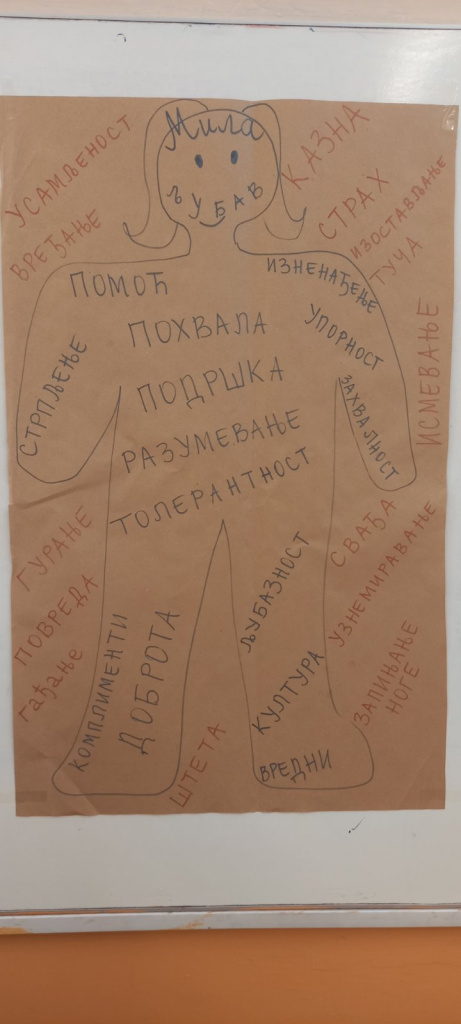 Мила
ЉУБАВ
УСАМЉЕНОСТ
ВРЕЂАЊЕ
КАЗНА
СТРАХ
ИЗОСТАВЉАЊЕ
ТУЧА
ИСМЕВАЊЕ
ПОМОЋ
ИЗНЕНАЂЕЊЕ
ПОХВАЛА
УПОРНОСТ
СТРПЉЕЊЕ
ПОДРШКА
ЗАХВАЛНОСТ
РАЗУМЕВАЊЕ
ТОЛЕРАНТНОСТ
ГУРАЊЕ
ПОВРЕДА
гађање
СВАЂА
УЗНЕМИРАВАЊЕ
ЗАПИЊАЊЕ
НОГЕ
КОМПЛИМЕНТИ
ДОБРОТА
ЉУБАЗНОСТ
КУЛТУРА
ВРЕДНИ
ШТЕТА